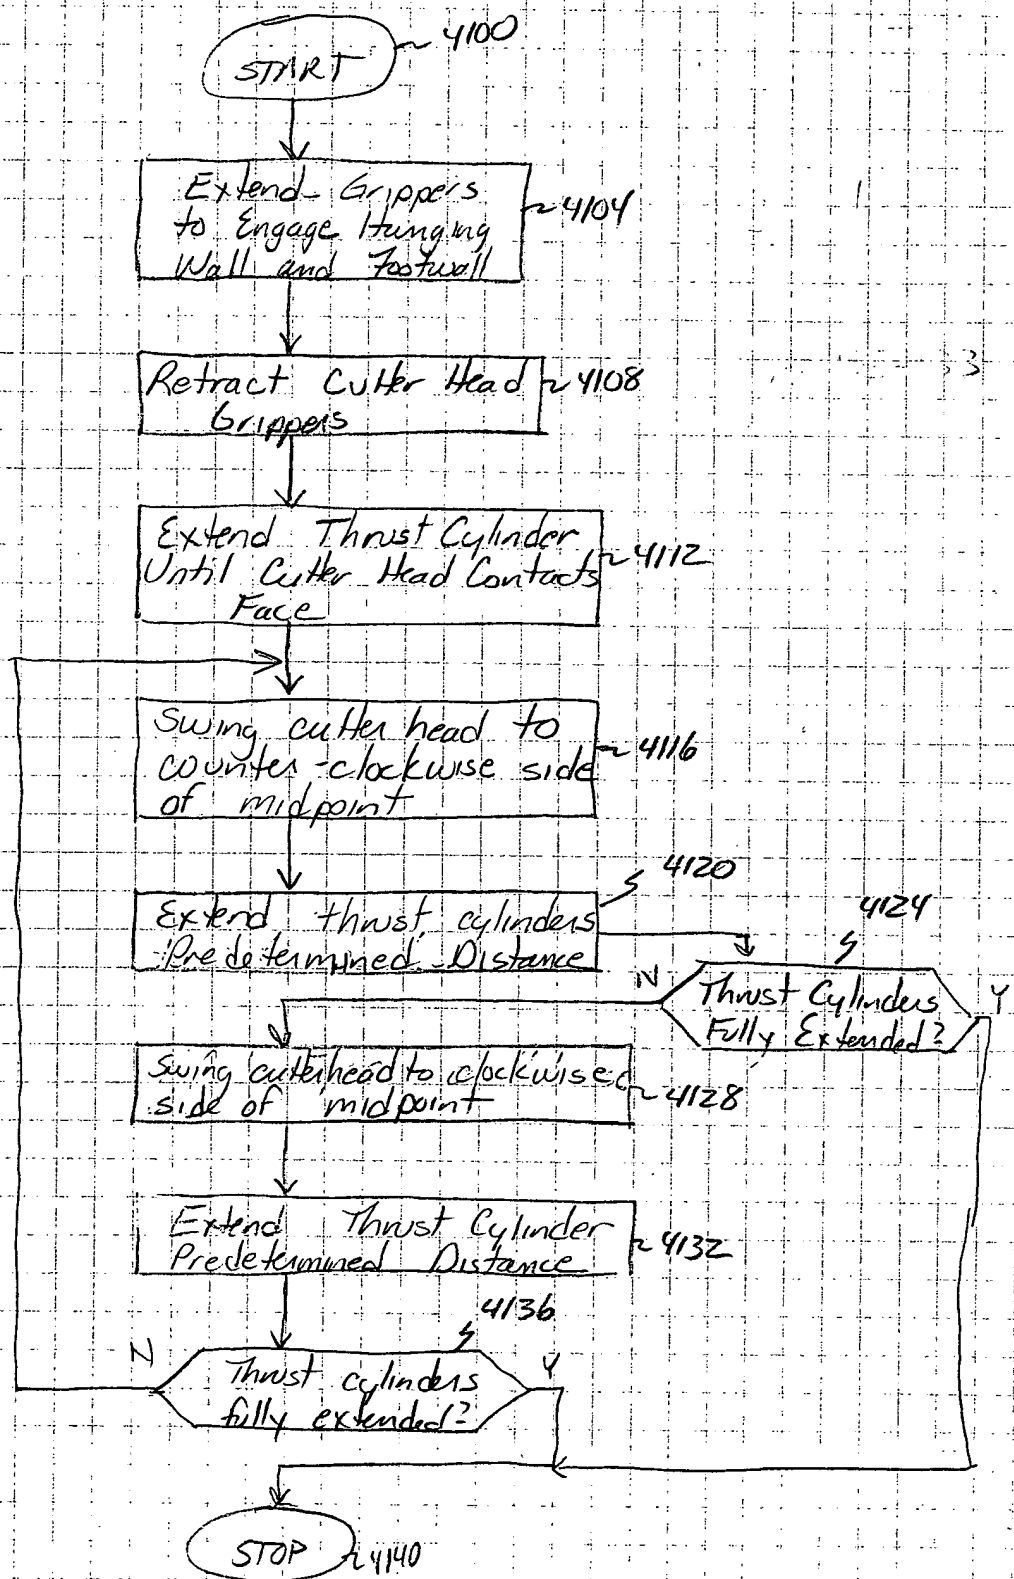 START
4100
Extend Grippers
to Engage Hanging
Wall and Footwall
4104
Retract Cutter Head
Grippers
4108
Extend Thrust Cylinder
Until Cutter Head Contacts
Face
4112
Swing cutter head to
counter-clockwise side
of midpoint
4116
Extend thrust cylinders
Predetermined Distance
4120
4124
Thrust Cylinders
Fully Extended?
N
Y
Swing cutterhead to clockwise
side of midpoint
4128
Extend Thrust Cylinder
Predetermined Distance
4132
4136
Thrust cylinders
fully extended?
N
Y
STOP
4140